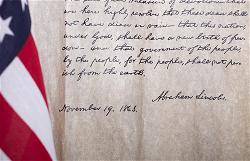 measure of devotion that
we here highly resolve that these dead shall
not have died in vain that this nation,
under God, shall have a new birth of free
dom and that government of the people
by the people, for the people, shall not per
ish from the earth.
Abraham Lincoln
November 19, 1863.